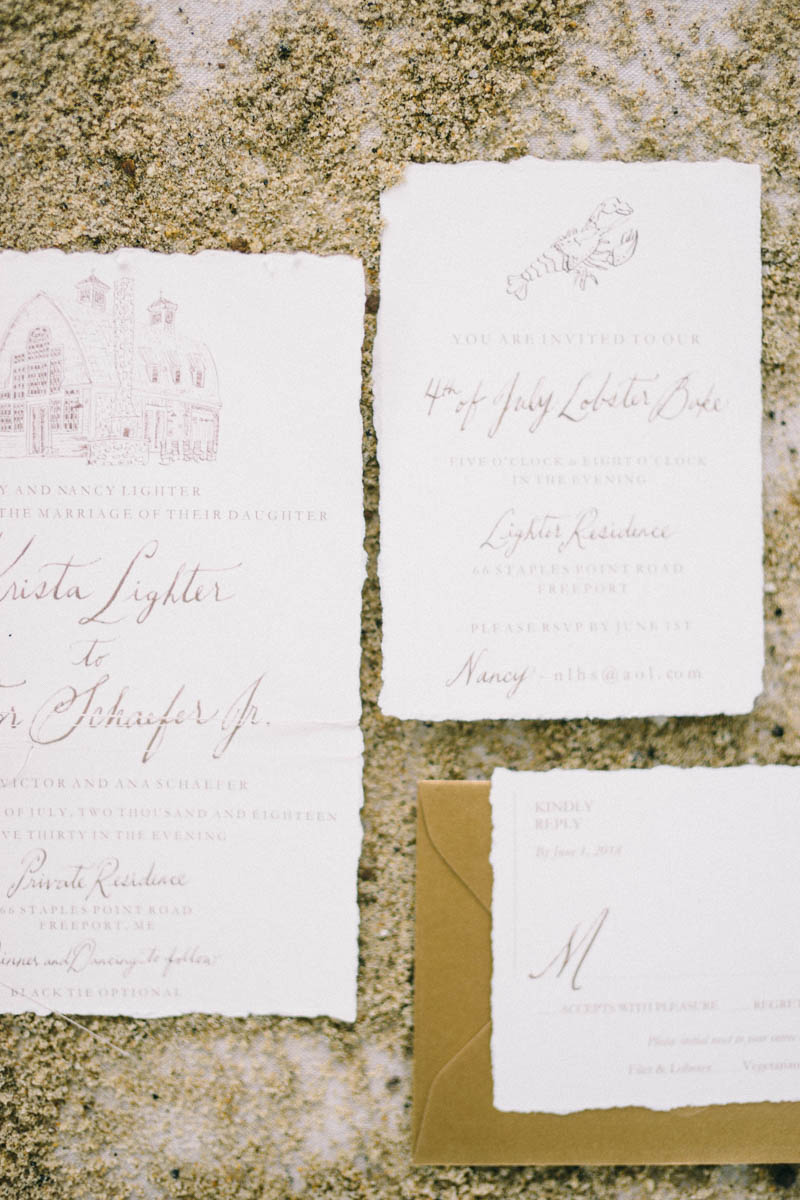 Y AND NANCY LIGHTER
THE MARRIAGE OF THEIR DAUGHTER
Krista Lighter
to
or Schaefer Jr.
VICTOR AND ANA SCHAEFER
OF JULY, TWO THOUSAND AND EIGHTEEN
VE THIRTY IN THE EVENING
Private Residence
66 STAPLES POINT ROAD
FREEPORT, ME
Dinner and Dancing to follow
BLACK TIE OPTIONAL
YOU ARE INVITED TO OUR
4th of July Lobster Bake
FIVE O'CLOCK to EIGHT O'CLOCK
IN THE EVENING
Lighter Residence
66 STAPLES POINT ROAD
FREEPORT
PLEASE RSVP BY JUNE 1ST
Nancy - nlhs@aol.com
KINDLY
REPLY
By June 1, 2018
M
ACCEPTS WITH PLEASURE REGRET
Please initial next to your entree
Filet & Lobster Vegetarian